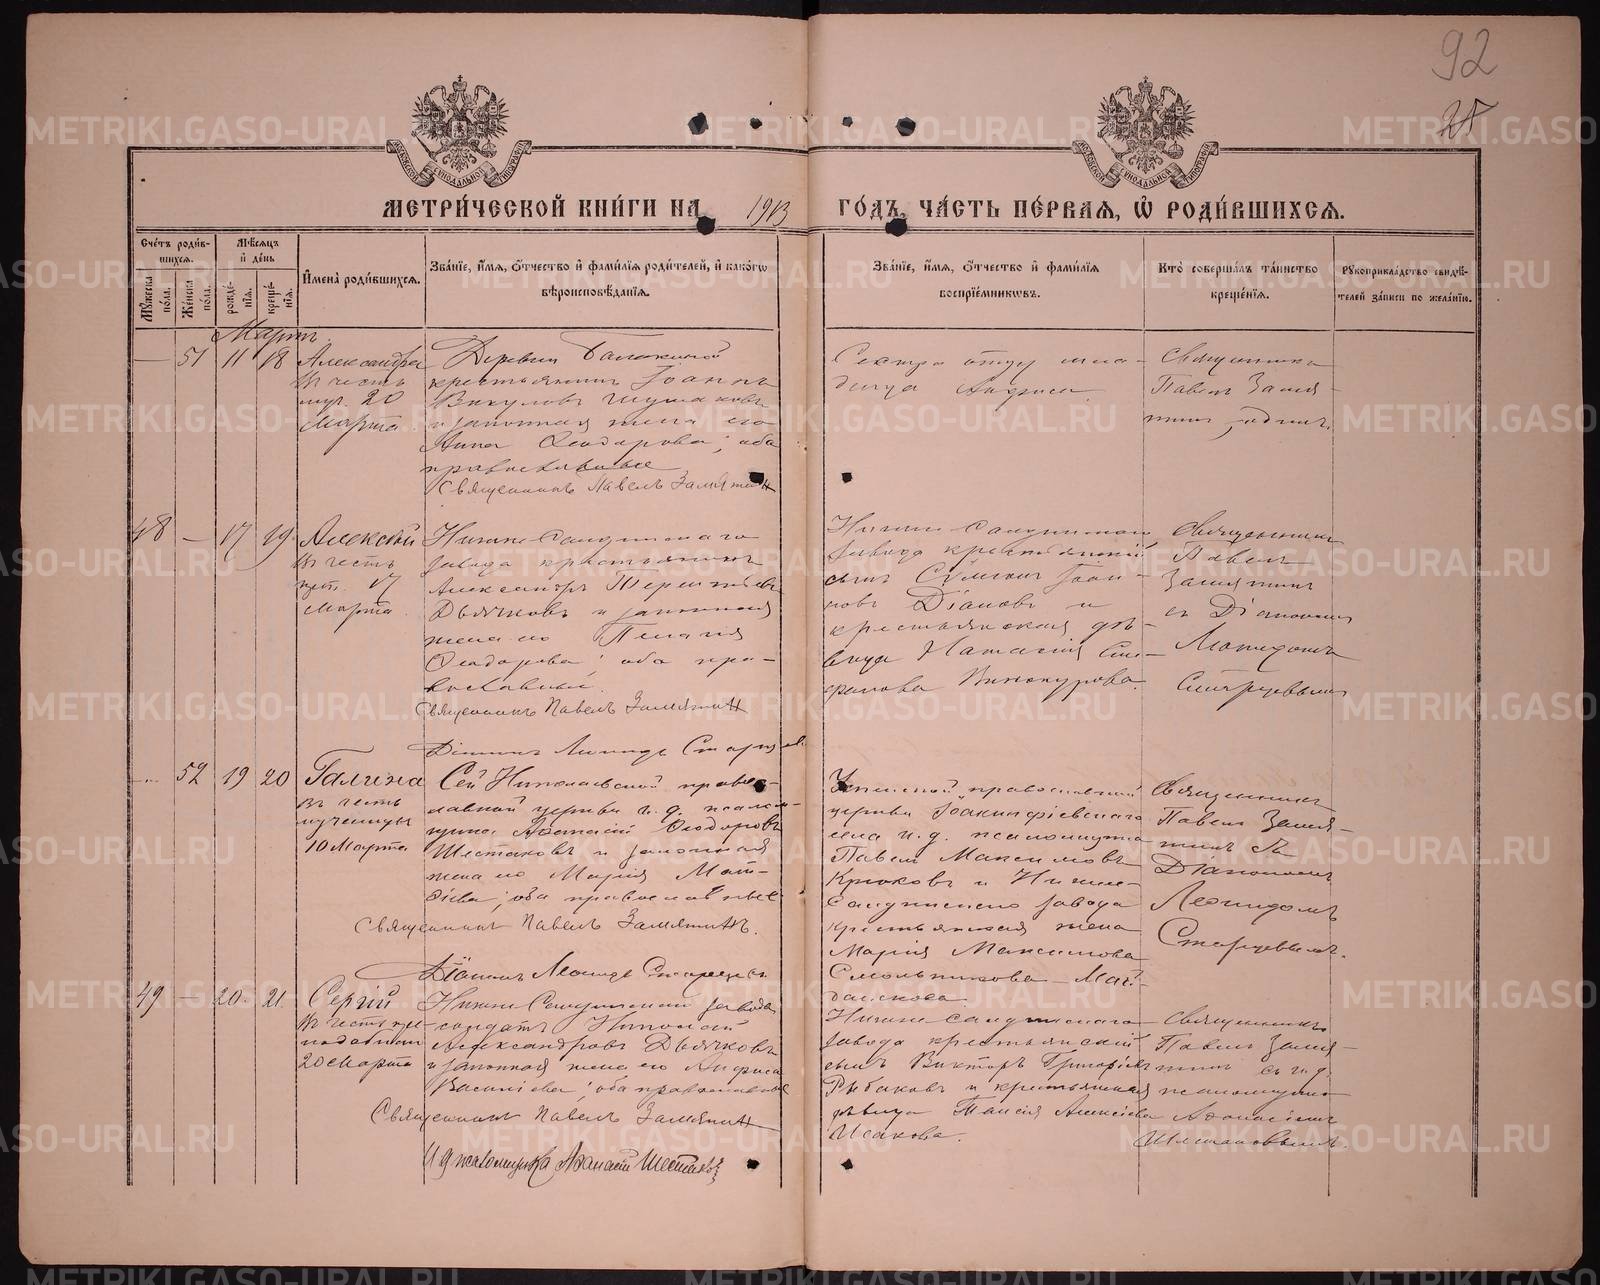 92
МЕТРИ́ЧЕСКОЙ КНИ́ГИ НА 1913
ГО́ДЪ, ЧА́СТЬ ПЕ́РВАЯ, Ѡ҆ РОДИ́ВШИХСЯ.
Сче́тъ роди́вшихся.
Мꙋ́жеска по́ла.
Же́нска по́ла.
Мѣ́сяцъ и҆ де́нь
рожде́нїя.
креще́нїя.
И҆мена̀ роди́вшихся.
Зва́нїе, и҆́мя, ѻ҆́тчество и҆ фами́лїя роди́телей, и҆ како́гѡ
вѣроисповѣ́данїя.
Зва́нїе, и҆́мя, ѻ҆́тчество и҆ фами́лїя
воспрїе́мникѡвъ.
Кто̀ соверша́лъ та́инство
креще́нїя.
Рꙋкоприкла́дство свидѣ́телей за́писи по жела́нїю.
Мартъ
— 51 11 18
Александра
въ честь
муч. 20
Марта
Деревни
крестьянинъ Іоаннъ
Викуловъ
и законная жена его
Анна Ѳеодорова; оба
православные
Священникъ Павелъ Замятинъ
Священникъ
Павелъ Замя-
тинъ, одинъ.
48 — 17 19
Алексѣй
въ честь
17
Марта
Нижне-Салдинскаго
завода крестьянинъ
Александръ Терентьевъ
Дьячковъ и законная
жена его Пелагія
Ѳеодорова; оба пра-
вославные.
Священникъ Павелъ Замятинъ
Діаконъ Леонидъ Старцевъ
Нижне-Салдинскаго
завода крестьянскій
сынъ Сѵмеонъ Іоан-
новъ Діановъ и
крестьянская дѣ-
вица Наталія Сте-
фанова Винокурова.
Священникъ
Павелъ
Замятинъ
съ Діакономъ
Леонидомъ
Старцевымъ
— 52 19 20
Галина
въ честь
мученицы
10 Марта
Сей Николаевской право-
славной церкви и. д. псалом-
щика Аѳанасій Ѳеодоровъ
Шестаковъ и законная
жена его Марія Мат-
ѳіева; оба православные
Священникъ Павелъ Замятинъ.
Діаконъ Леонидъ Старцевъ
православной
церкви Іоакинфіевскаго
села и. д. псаломщика
Павелъ Максимовъ
Крюковъ и Нижне-
Салдинскаго завода
крестьянская жена
Марія Максимова
Смольникова
Священникъ
Павелъ Замя-
тинъ съ
Діакономъ
Леонидомъ
Старцевымъ.
49 — 20. 21.
Сергій
въ честь пре-
подобнаго
20 Марта
Нижне-Салдинскаго завода
солдатъ Николай
Александровъ Дьячковъ
и законная жена его Анфиса
Василіева; оба православные
Священникъ Павелъ Замятинъ
И д псаломщика Аѳанасій Шестаковъ
Нижне-Салдинскаго
завода крестьянскій
сынъ Викторъ Григорьевъ
Рыбаковъ и крестьянская
дѣвица Таисія Алексіева
Исакова.
Священникъ
Павелъ Замя-
тинъ съ и. д.
псаломщика
Аѳанасіемъ
Шестаковымъ.
METRIKI.GASO-URAL.RU